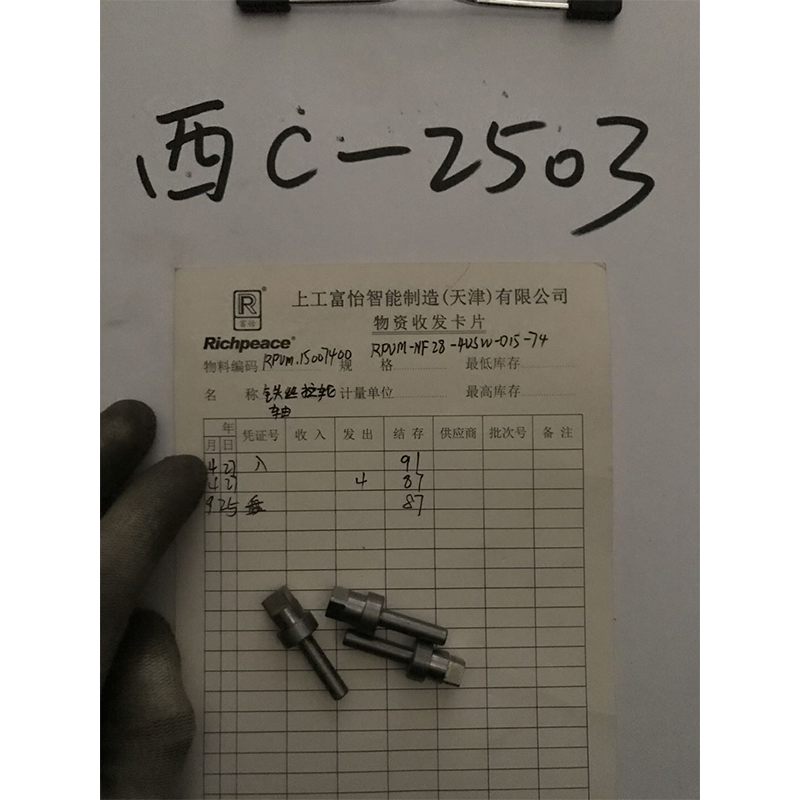 西C-2503
R
富怡
Richpeace®
上工富怡智能制造(天津)有限公司
物资收发卡片
物料编码 RPVM.15007400 规格 RPVM-NF28-4USW-015-74 最低库存
名称 铁丝拉轮轴 计量单位 最高库存
年 月 日 凭证号 收入 发出 结存 供应商 批次号 备注
4 21 入 91
4 21 4 87
9 25 盘 87